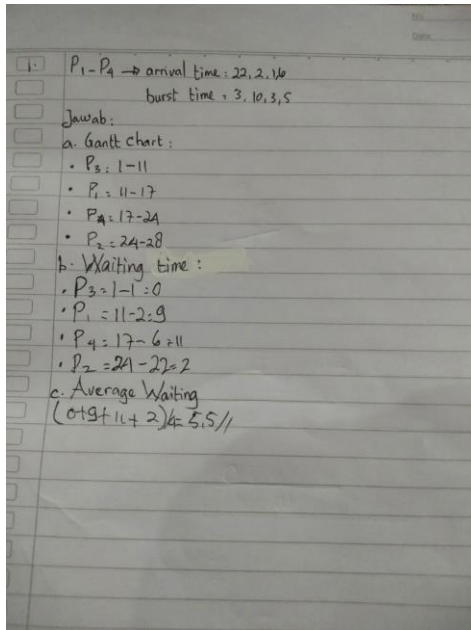 No
Date
1. P1-P4 → arrival time: 22, 2, 1, 6
burst time = 3, 10, 3, 5
Jawab:
a. Gantt Chart:
• P3: 1-11
• P1 = 11-17
• P4: 17-24
• P2 = 24-28
b. Waiting time:
• P3 = 1-1 = 0
• P1 = 11-2 = 9
• P4 = 17-6 = 11
• P2 = 24-22 = 2
c. Average Waiting
(0+9+11+2)/4 = 5,5 //